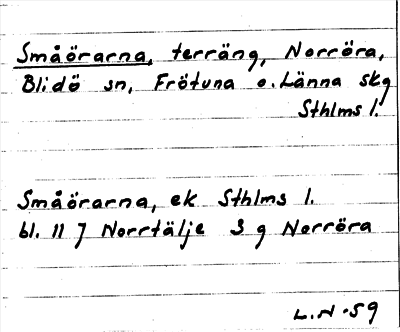 Småörarna, terräng, Norröra,
Blidö sn, Frötuna o. Länna skg
Sthlms l.
Småörarna, ek Sthlms l.
bl. 11 7 Norrtälje 3 g Norröra
L.N-59